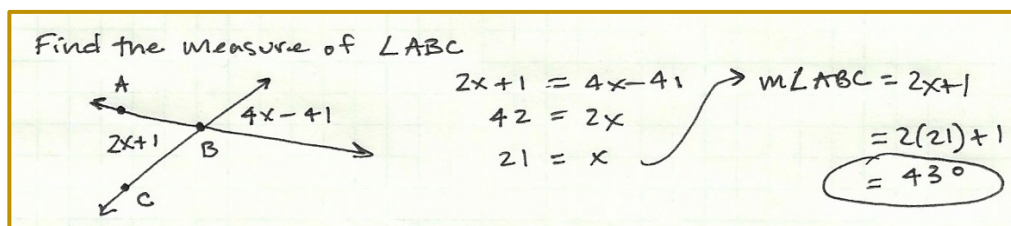 Find the measure of ∠ABC
A
4x-41
2x+1
B
C
2x+1 = 4x-41
42 = 2x
21 = x
m∠ABC = 2x+1
= 2(21)+1
= 43°